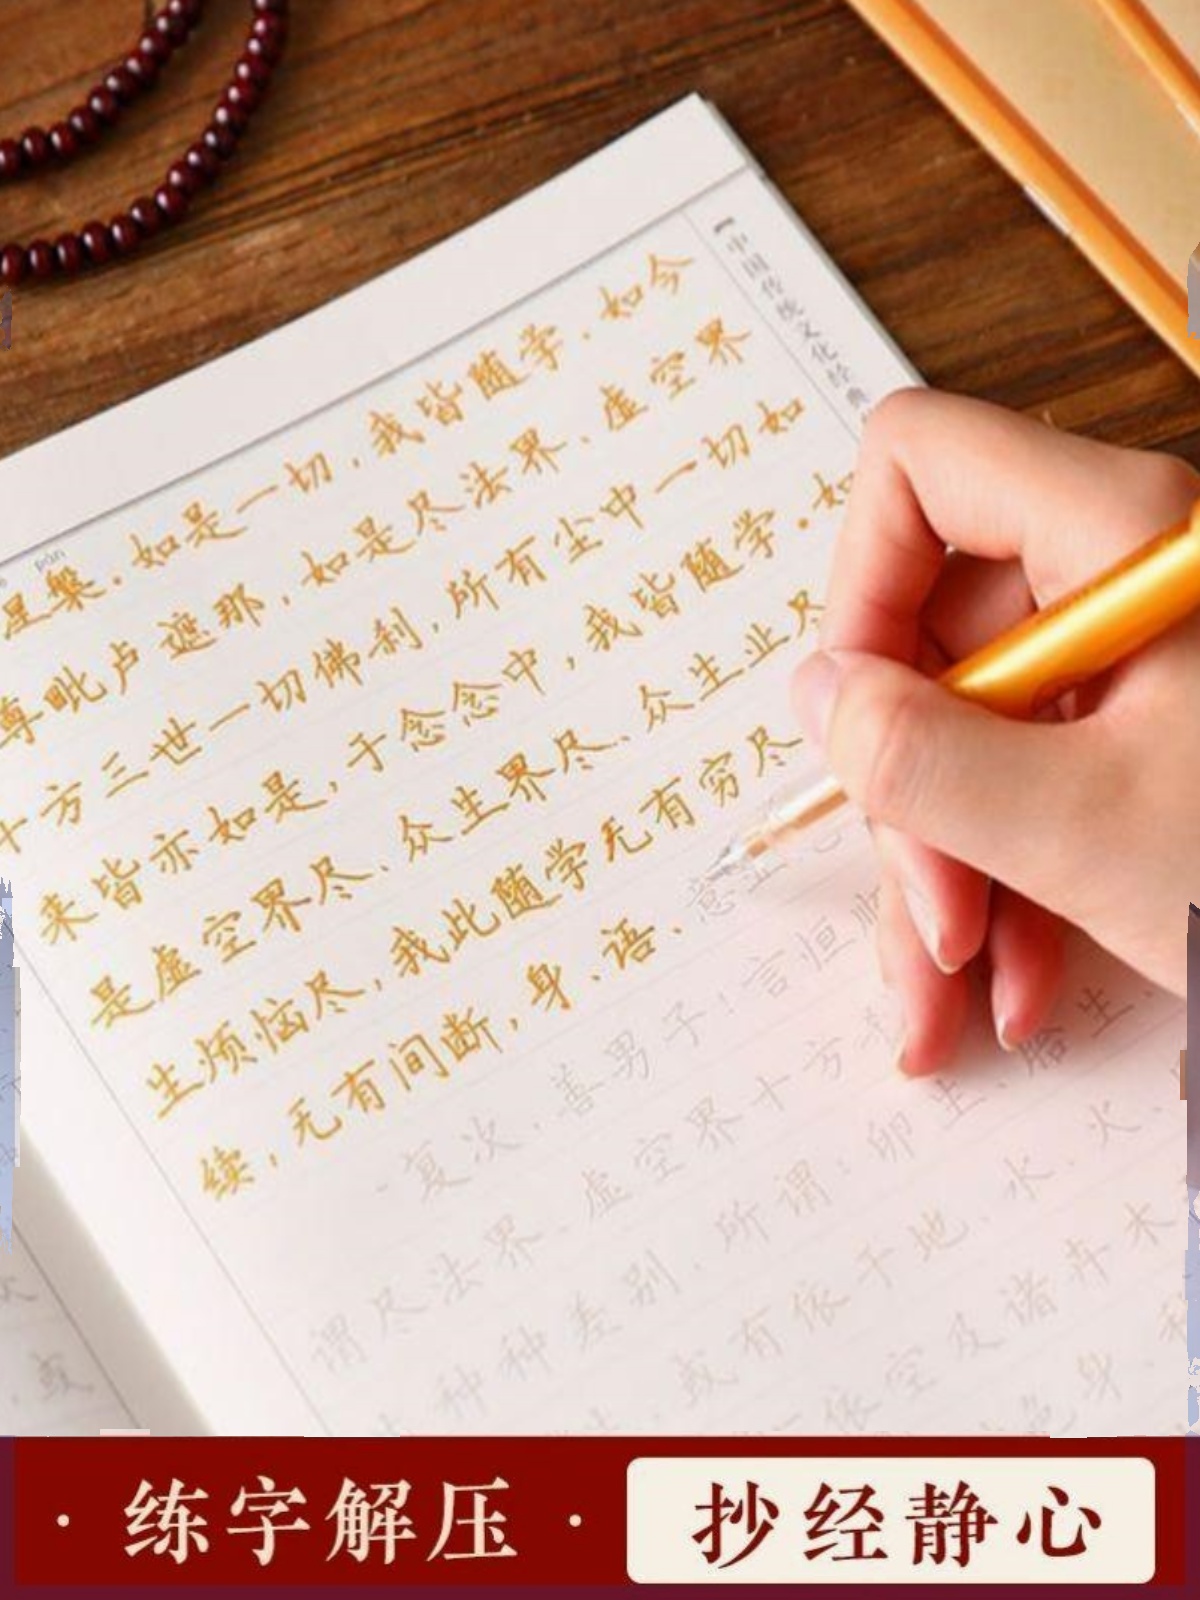 【中国传统文化经典
pán
涅槃.如是一切,我皆随学.如今
尊毗卢遮那,如是尽法界、虚空界
十方三世一切佛刹,所有尘中一切如
来皆亦如是,于念念中,我皆随学.如
是虚空界尽、众生界尽、众生业尽
生烦恼尽,我此随学无有穷尽
续,无有间断,身、语、意业
复次,善男子!言恒顺
谓尽法界、虚空界十方
种种差别.所谓:卵生、胎生、
或有依于地、水、火、
依空及诸卉木
色身
或
·练字解压·
抄经静心